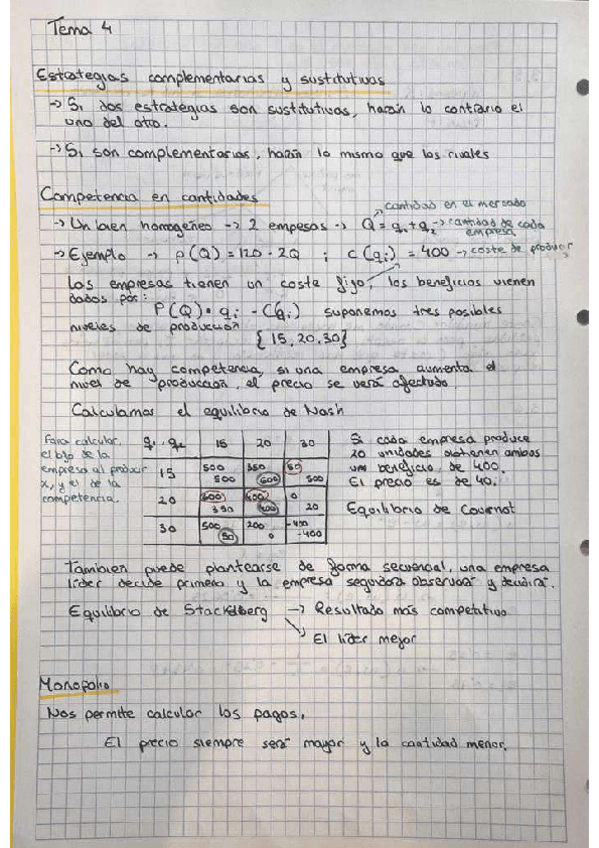 Tema 4
Estrategias complementarias y sustitutivas
-> Si dos estrategias son sustitutivas, harán lo contrario el
uno del otro.
-> Si son complementarias, harán lo mismo que los rivales
Competencia en cantidades
cantidad en el mercado
-> Un bien homogéneo -> 2 empesas -> Q = q1 + q2 -> cantidad de cada
empresa
-> Ejemplo -> p(Q) = 120 - 2Q ; C(qi) = 400 -> coste de producir
Las empresas tienen un coste fijo, los beneficios vienen
dados por:
P(Q) · qi - C(qi) suponemos tres posibles
niveles de producción
{15, 20, 30}
Como hay competencia, si una empresa aumenta el
nivel de producción, el precio se verá afectado.
Calculamos el equilibrio de Nash
Para calcular,
el bfo de la
empresa al producir
x, y el de la
competencia.
q1 · q2 15 20 30
15 500 500 350 600 50 500
20 600 350 400 400 0 20
30 500 50 200 0 -400 -400
Si cada empresa produce
20 unidades obtienen ambas
un beneficio de 400.
El precio es de 40.
Equilibrio de Cournot
Tambien puede plantearse de forma secuencial, una empresa
líder decide primero y la empresa seguidora observará y decidirá.
Equilibrio de Stackelberg -> Resultado más competitivo
El líder mejor
Monopolio
Nos permite calcular los pagos.
El precio siempre será mayor y la cantidad menor.